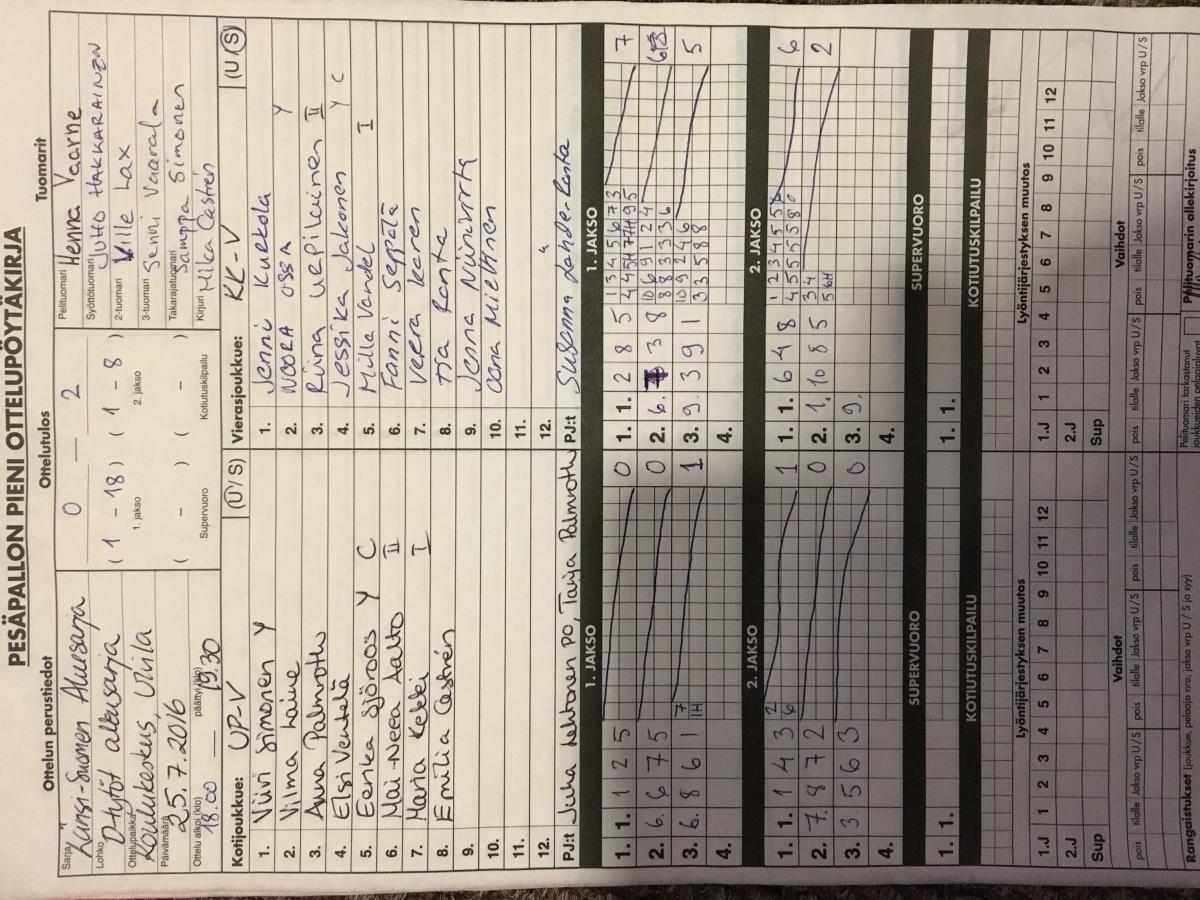 PESÄPALLON PIENI OTTELUPÖYTÄKIRJA
Ottelun perustiedot
Sarja
Länsi-Suomen Aluesarja
Lohko
D-tytöt aluesarja
Ottelupaikka
Koulukeskus, Ulvila
Päivämäärä
25.7.2016
Ottelu alkoi (klo) 18.00 päättyi (klo) 19.30
Ottelutulos
0 — 2
( 1 - 18 ) ( 1 - 8 )
1. jakso 2. jakso
( - ) ( - )
Supervuoro Kotiutuskilpailu
Tuomarit
Pelituomari Henna Vaarne
Syöttötuomari JUHO HAKKARAINEN
2-tuomari Ville Lax
3-tuomari Senni Vaarala
Takarajatuomari Samppa Simonen
Kirjuri Mika Castrén
Kotijoukkue: UP-V (U / S)
1. Viivi Simonen Y
2. Vilma Laine
3. Anna Palmroth
4. Elsi Ventelä
5. Eerika Sjöroos Y C
6. Mai-Neea Aalto II
7. Maria Kekki I
8. Emilia Castrén
9.
10.
11.
12.
PJ:t Juha Lehtonen PO, Tarja Palmroth
Vierasjoukkue: KK-V (U / S)
1. Jenni Kuekola
2. NOORA OSSA Y
3. Riina Uepiluinen II
4. Jessika Jakonen Y C
5. Milla Vandel I
6. Fanni Seppälä
7. Veera Karen
8. Tia Ranta
9. Jenna Niinivirta
10. Oona Miettinen
11.
12.
PJ:t Susanna Lahde-Ranta
1. JAKSO
1. 1. 1 2 5 0
2. 6. 6 7 5 0
3. 6. 8 6 1 7 1H 1
4.
2. JAKSO
1. 1. 1 4 3 2 6 1
2. 7. 8 7 2 0
3. 3 5 6 3 0
4.
SUPERVUORO
1. 1.
KOTIUTUSKILPAILU
1. JAKSO
1. 1. 2 8 5 7
2. 6. 3 8
3. 9. 3 9 1 5
4.
2. JAKSO
1. 1. 6 4 8 6
2. 1. 10 8 5 2
3. 9.
4.
SUPERVUORO
1. 1.
KOTIUTUSKILPAILU
Lyöntijärjestyksen muutos
1.J 1 2 3 4 5 6 7 8 9 10 11 12
2.J
Sup
Vaihdot
pois tilalle Jakso vrp U / S pois tilalle Jakso vrp U / S pois tilalle Jakso vrp U / S
Lyöntijärjestyksen muutos
1.J 1 2 3 4 5 6 7 8 9 10 11 12
2.J
Sup
Vaihdot
pois tilalle Jakso vrp U / S pois tilalle Jakso vrp U / S pois tilalle Jakso vrp U / S
Rangaistukset (joukkue, pelaaja nro, jakso vrp U / S ja syy)
Pelituomari tarkastanut
Pelituomarin allekirjoitus